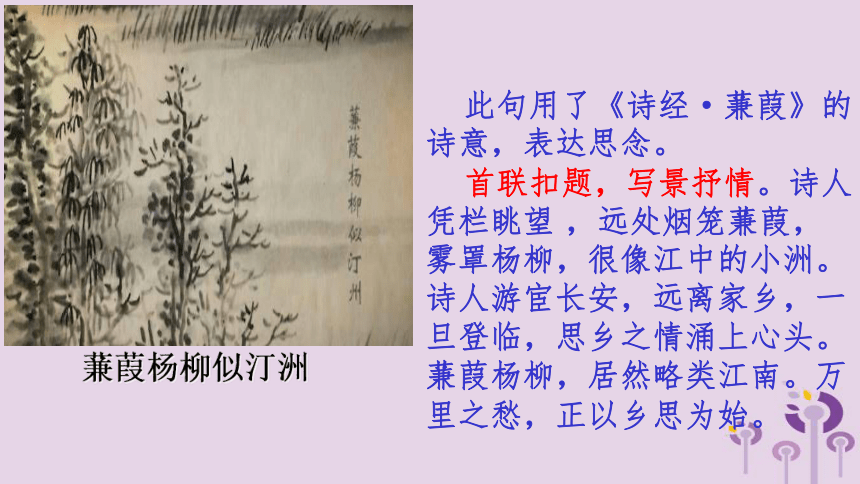 蒹葭杨柳似汀洲
蒹葭杨柳似汀洲
此句用了《诗经·蒹葭》的
诗意，表达思念。
首联扣题，写景抒情。诗人
凭栏眺望 ，远处烟笼蒹葭，
雾罩杨柳，很像江中的小洲。
诗人游宦长安，远离家乡，一
旦登临，思乡之情涌上心头。
蒹葭杨柳，居然略类江南。万
里之愁，正以乡思为始。